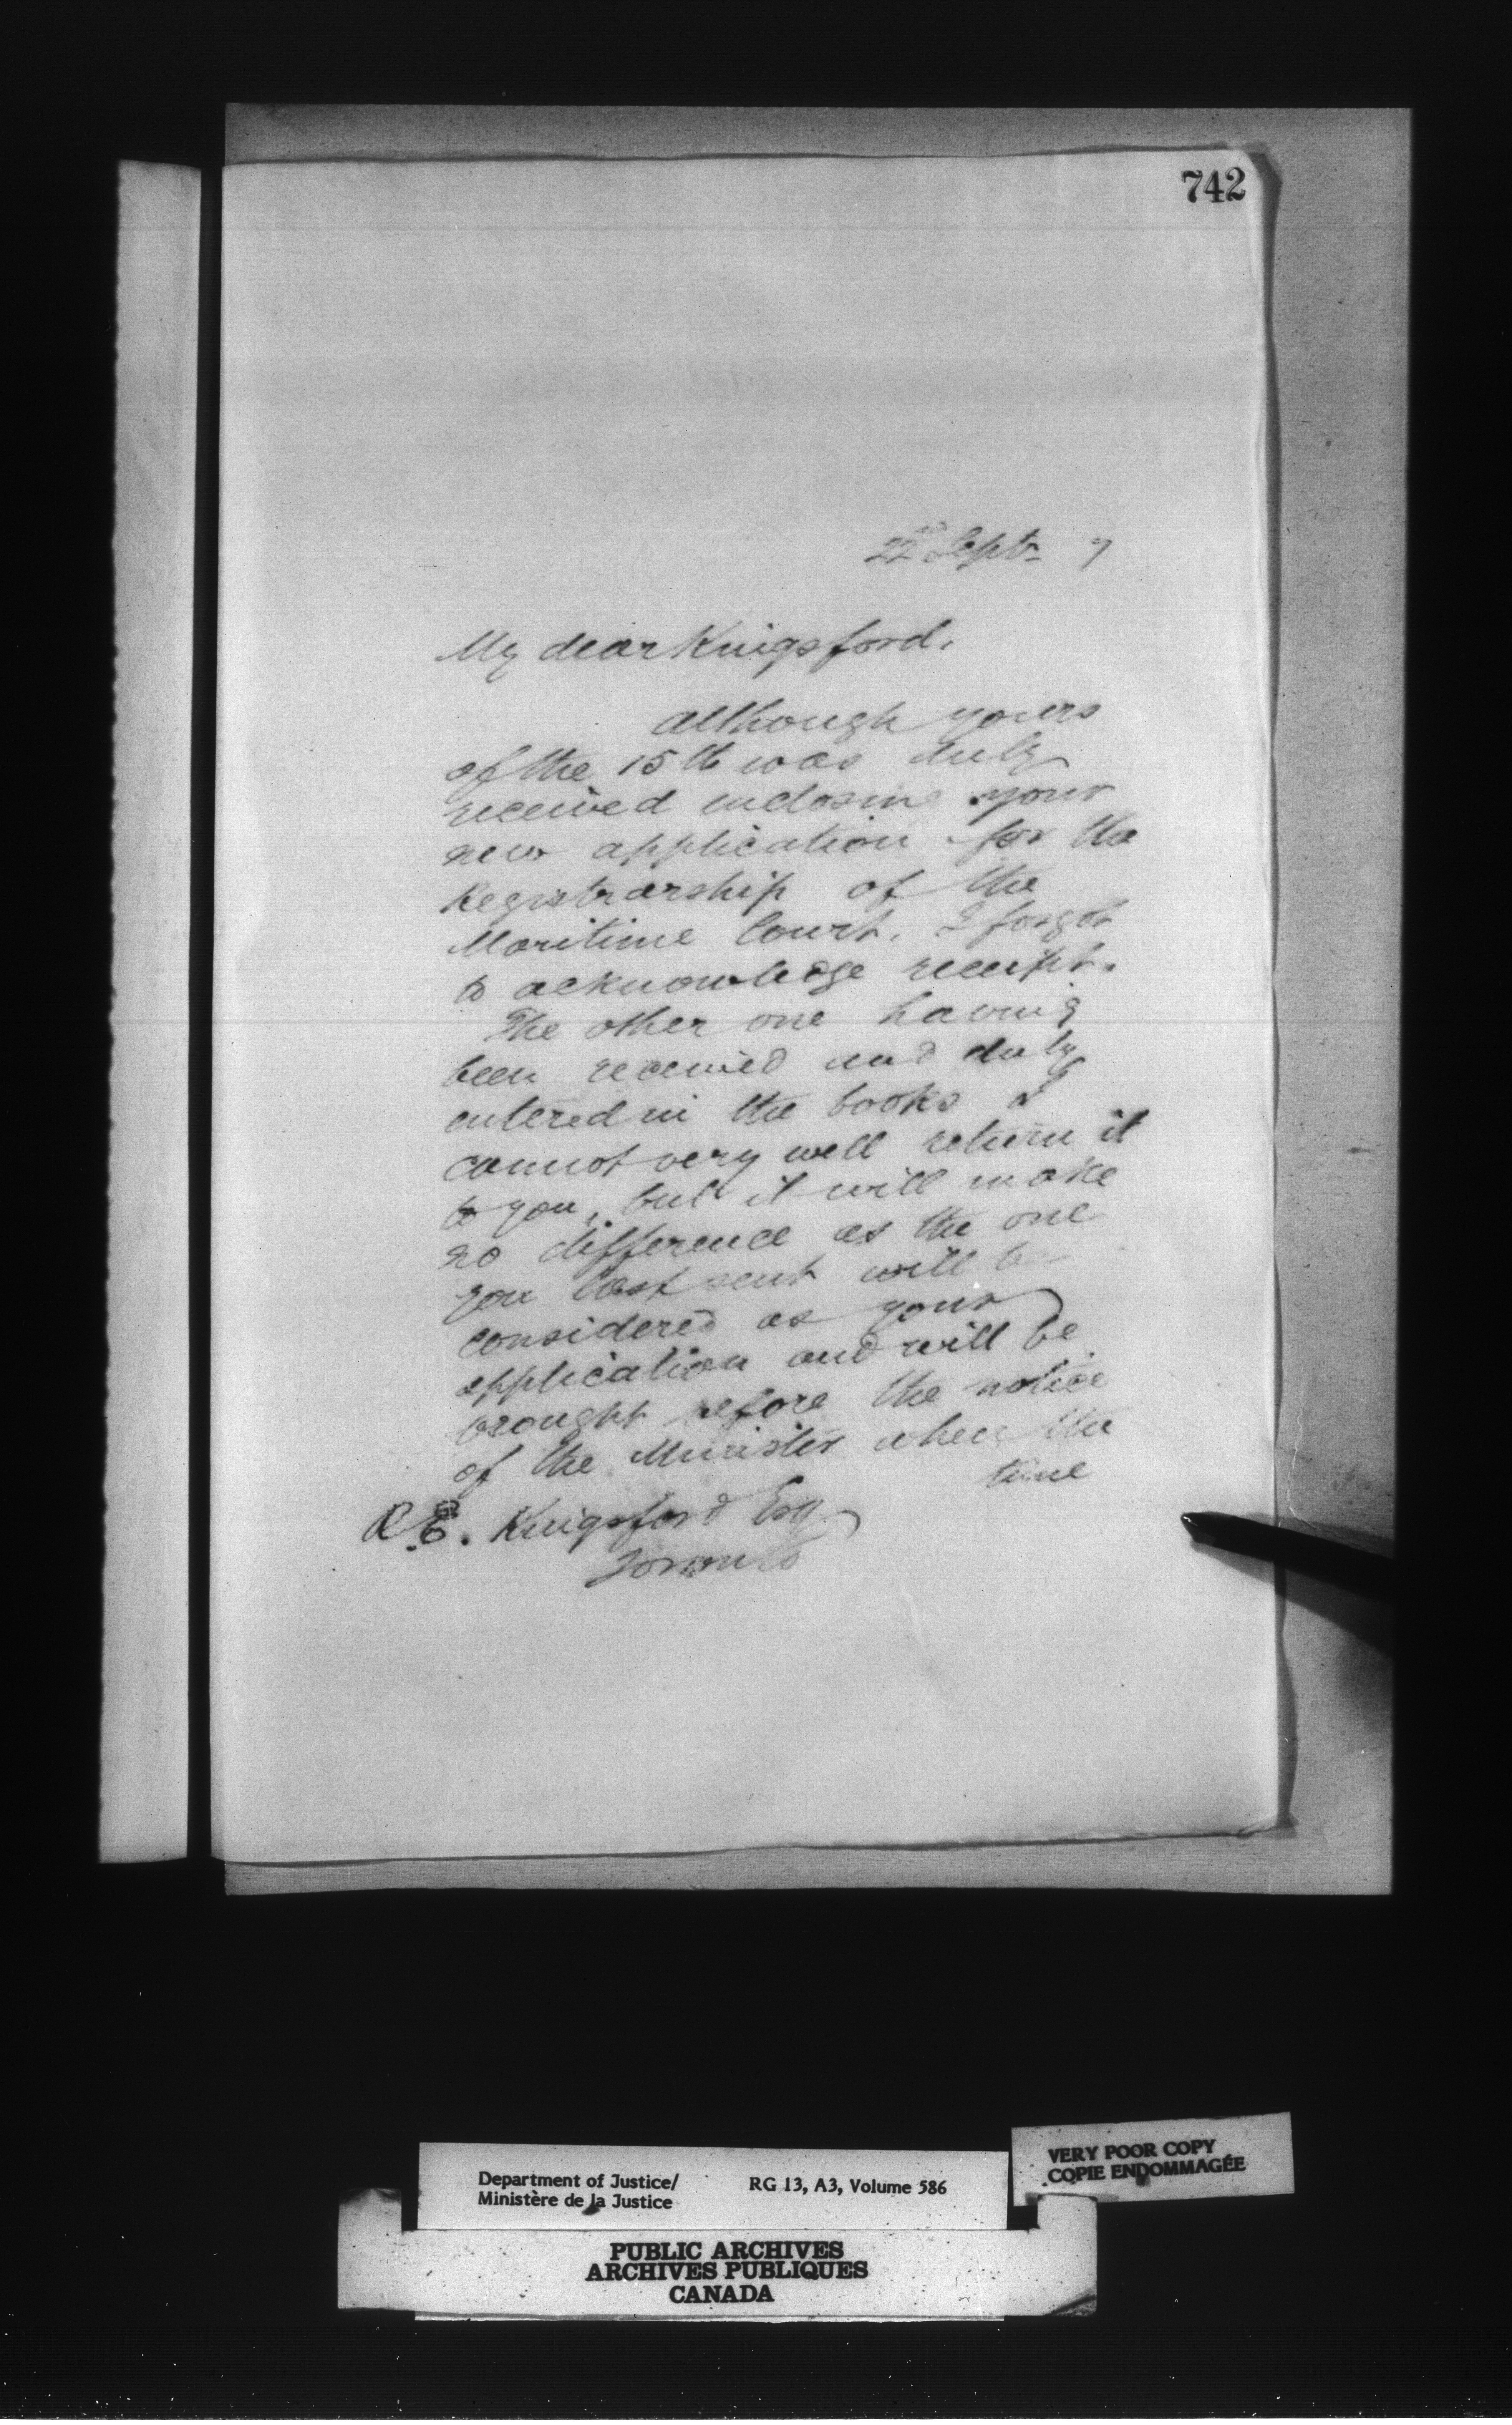 742
22nd Septr 7
My dear Kingsford.
Although yours
of the 15th was duly
received enclosing your
new application for the
Registrarship of the
Maritime Court. I forgot
to acknowledge receipt.
The other one having
been received and duly
entered in the books I
cannot very well return it
to you, but it will make
no difference as the one
you last sent will be
considered as your
application and will be
brought before the notice
of the Minister when the
time
R.E. Kingsford Esq
Toronto
Department of Justice/
Ministère de la Justice
RG 13, A3, Volume 586
VERY POOR COPY
COPIE ENDOMMAGÉE
PUBLIC ARCHIVES
ARCHIVES PUBLIQUES
CANADA